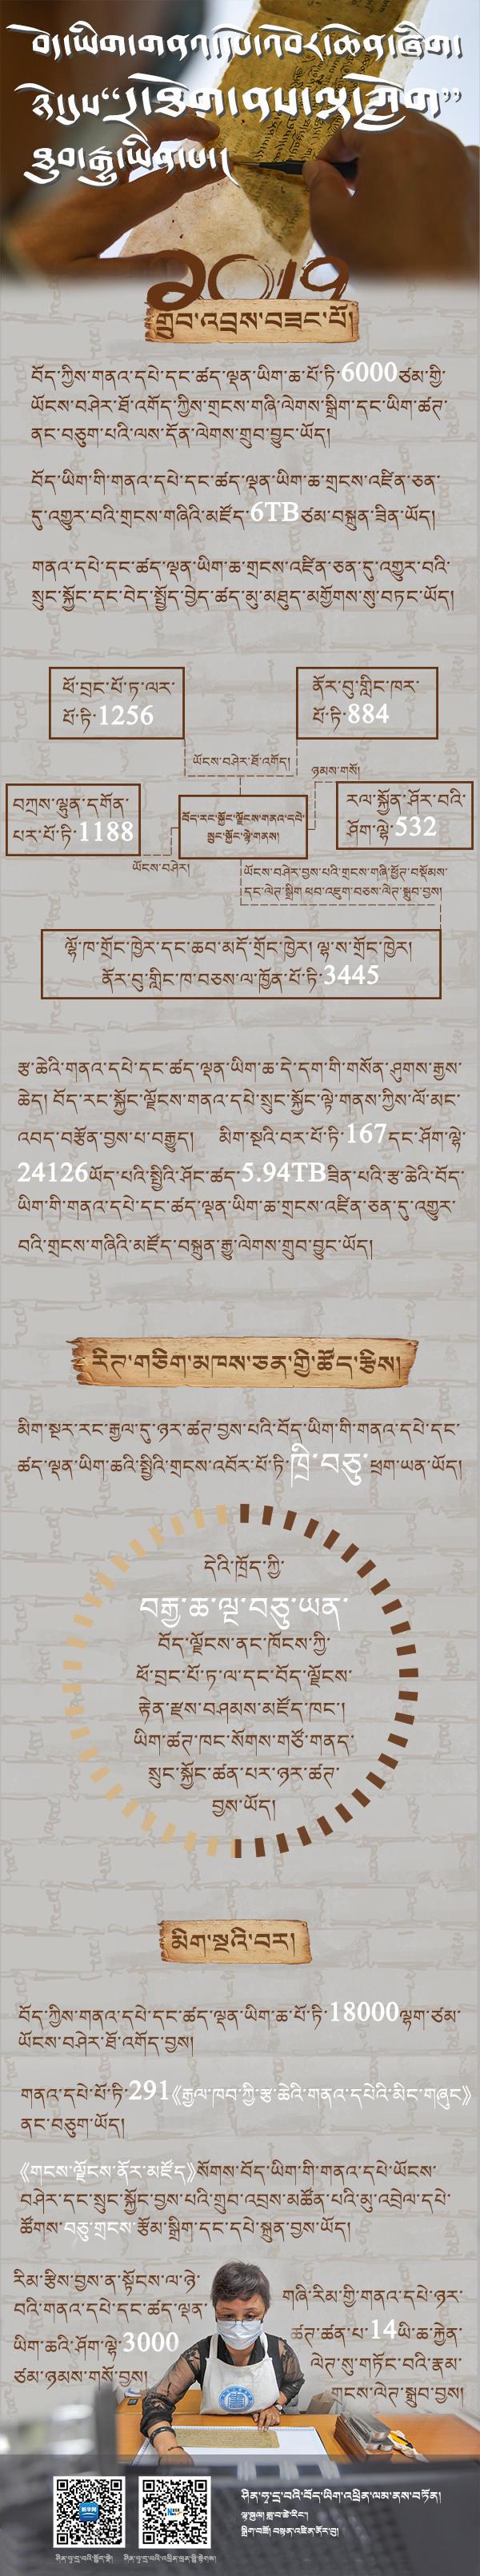 2019
གྲུབ་འབྲས་བཟང་པོ།
བོད་ཀྱིས་གནའ་དཔེ་དང་ཚད་ལྡན་ཡིག་ཆ་པོ་ཏི་6000ཙམ་གྱི་
ཡོངས་བཤེར་ཐོ་འགོད་ཀྱིས་གྲངས་གཞི་ལེགས་སྒྲིག་དང་ཡིག་ཚན་
ནང་བཅུག་པའི་ལས་དོན་ལེགས་གྲུབ་བྱུང་ཡོད།
བོད་ཡིག་གི་གནའ་དཔེ་དང་ཚད་ལྡན་ཡིག་ཆ་གྲངས་འཛིན་ཅན་
དུ་འགྱུར་བའི་གྲངས་གཞིའི་མཛོད་6TBཙམ་བསྐྲུན་ཟིན་ཡོད།
གནའ་དཔེ་དང་ཚད་ལྡན་ཡིག་ཆ་གྲངས་འཛིན་ཅན་དུ་འགྱུར་བའི་
སྲུང་སྐྱོང་དང་བེད་སྤྱོད་བྱེད་ཚད་མུ་མཐུད་མགྱོགས་སུ་བཏང་ཡོད།
ཕོ་བྲང་པོ་ཏ་ལར་
པོ་ཏི་1256
ནོར་བུ་གླིང་ཁར་
པོ་ཏི་884
ཡོངས་བཤེར་ཐོ་འགོད།
ཉམས་གསོ།
བཀྲས་ལྷུན་དགོན་
པར་པོ་ཏི་1188
བོད་རང་སྐྱོང་ལྗོངས་གནའ་དཔེ་
སྲུང་སྐྱོང་ལྟེ་གནས།
རལ་སྐྱོན་ཤོར་བའི་
ཤོག་ལྷེ་532
ཡོངས་བཤེར།
ཡོངས་བཤེར་བྱས་པའི་གྲངས་གཞི་ཕྱོན་བསྡོམས་
དང་ལེན་སྒྲིག ཕབ་འཇུག་བཅས་ལེན་སྒྲུབ་བྱས།
ལྷོ་ཁ་གྲོང་ཁྱེར་དང་ཆབ་མདོ་གྲོང་ཁྱེར། ལྷ་ས་གྲོང་ཁྱེར།
ནོར་བུ་གླིང་ཁ་བཅས་ལ་ཁྱོན་པོ་ཏི་3445
རྩ་ཆེའི་གནའ་དཔེ་དང་ཚད་ལྡན་ཡིག་ཆ་དེ་དག་གི་གསོན་ཤུགས་རྒྱས་
ཆེད། བོད་རང་སྐྱོང་ལྗོངས་གནའ་དཔེ་སྲུང་སྐྱོང་ལྟེ་གནས་ཀྱིས་ལོ་མང་
འབད་བརྩོན་བྱས་པ་བརྒྱུད། མིག་སྔའི་བར་པོ་ཏི་167དང་ཤོག་ལྷེ་
24126ཡོད་པའི་སྤྱིའི་ཤོང་ཚད་5.94TBཟིན་པའི་རྩ་ཆེའི་བོད་
ཡིག་གི་གནའ་དཔེ་དང་ཚད་ལྡན་ཡིག་ཆ་གྲངས་འཛིན་ཅན་དུ་འགྱུར་
བའི་གྲངས་གཞིའི་མཛོད་བསྐྲུན་རྒྱུ་ལེགས་གྲུབ་བྱུང་ཡོད།
རིན་གཅིག་མཁས་ཅན་གྱི་ཚོད་རྩིས།
མིག་སྔར་རང་རྒྱལ་དུ་ཉར་ཚན་བྱས་པའི་བོད་ཡིག་གི་གནའ་དཔེ་དང་
ཚད་ལྡན་ཡིག་ཆའི་སྤྱིའི་གྲངས་འབོར་པོ་ཏི་ཁྲི་བཅུ་ཕྲག་ཡན་ཡོད།
དེའི་ཁྲོད་ཀྱི་
བརྒྱ་ཆ་ལྔ་བཅུ་ཡན་
བོད་ལྗོངས་ནང་ཁོངས་ཀྱི་
ཕོ་བྲང་པོ་ཏ་ལ་དང་བོད་ལྗོངས་
རྟེན་རྫས་བཤམས་མཛོད་ཁང་།
ཡིག་ཚན་ཁང་སོགས་གཙོ་གནད་
སྲུང་སྐྱོང་ཚན་པར་ཉར་ཚན་
བྱས་ཡོད།
མིག་སྔའི་བར།
བོད་ཀྱིས་གནའ་དཔེ་དང་ཚད་ལྡན་ཡིག་ཆ་པོ་ཏི་18000ལྷག་ཙམ་
ཡོངས་བཤེར་ཐོ་འགོད་བྱས།
གནའ་དཔེ་པོ་ཏི་291《རྒྱལ་ཁབ་ཀྱི་རྩ་ཆེའི་གནའ་དཔེའི་མིང་གཞུང》
ནང་བཅུག་ཡོད།
《གངས་ལྗོངས་ནོར་མཛོད》སོགས་བོད་ཡིག་གི་གནའ་དཔེ་ཡོངས་
བཤེར་དང་སྲུང་སྐྱོང་བྱས་པའི་གྲུབ་འབྲས་མཚོན་པའི་མུ་འབྲེལ་དཔེ་
ཚོགས་བཅུ་གྲངས་རྩོམ་སྒྲིག་དང་དཔེ་སྐྲུན་བྱས་ཡོད།
རིམ་རྩིས་བྱས་ན་སྟོངས་ལ་ཉེ་
བའི་གནའ་དཔེ་དང་ཚད་ལྡན་
ཡིག་ཆའི་ཤོག་ལྷེ་3000
ཙམ་ཉམས་གསོ་བྱས།
གཞི་རིམ་གྱི་གནའ་དཔེ་ཉར་
ཚན་ཚན་པ་14ཡི་ཆ་རྐྱེན་
ལེན་སུ་གཏོང་བའི་རྣམ་
གངས་ལེན་སྒྲུབ་བྱས།
ཤིན་ཧྭ་དྲ་བའི་བོད་ཡིག་འཕྲིན་ལམ་ནས་བཏོན།